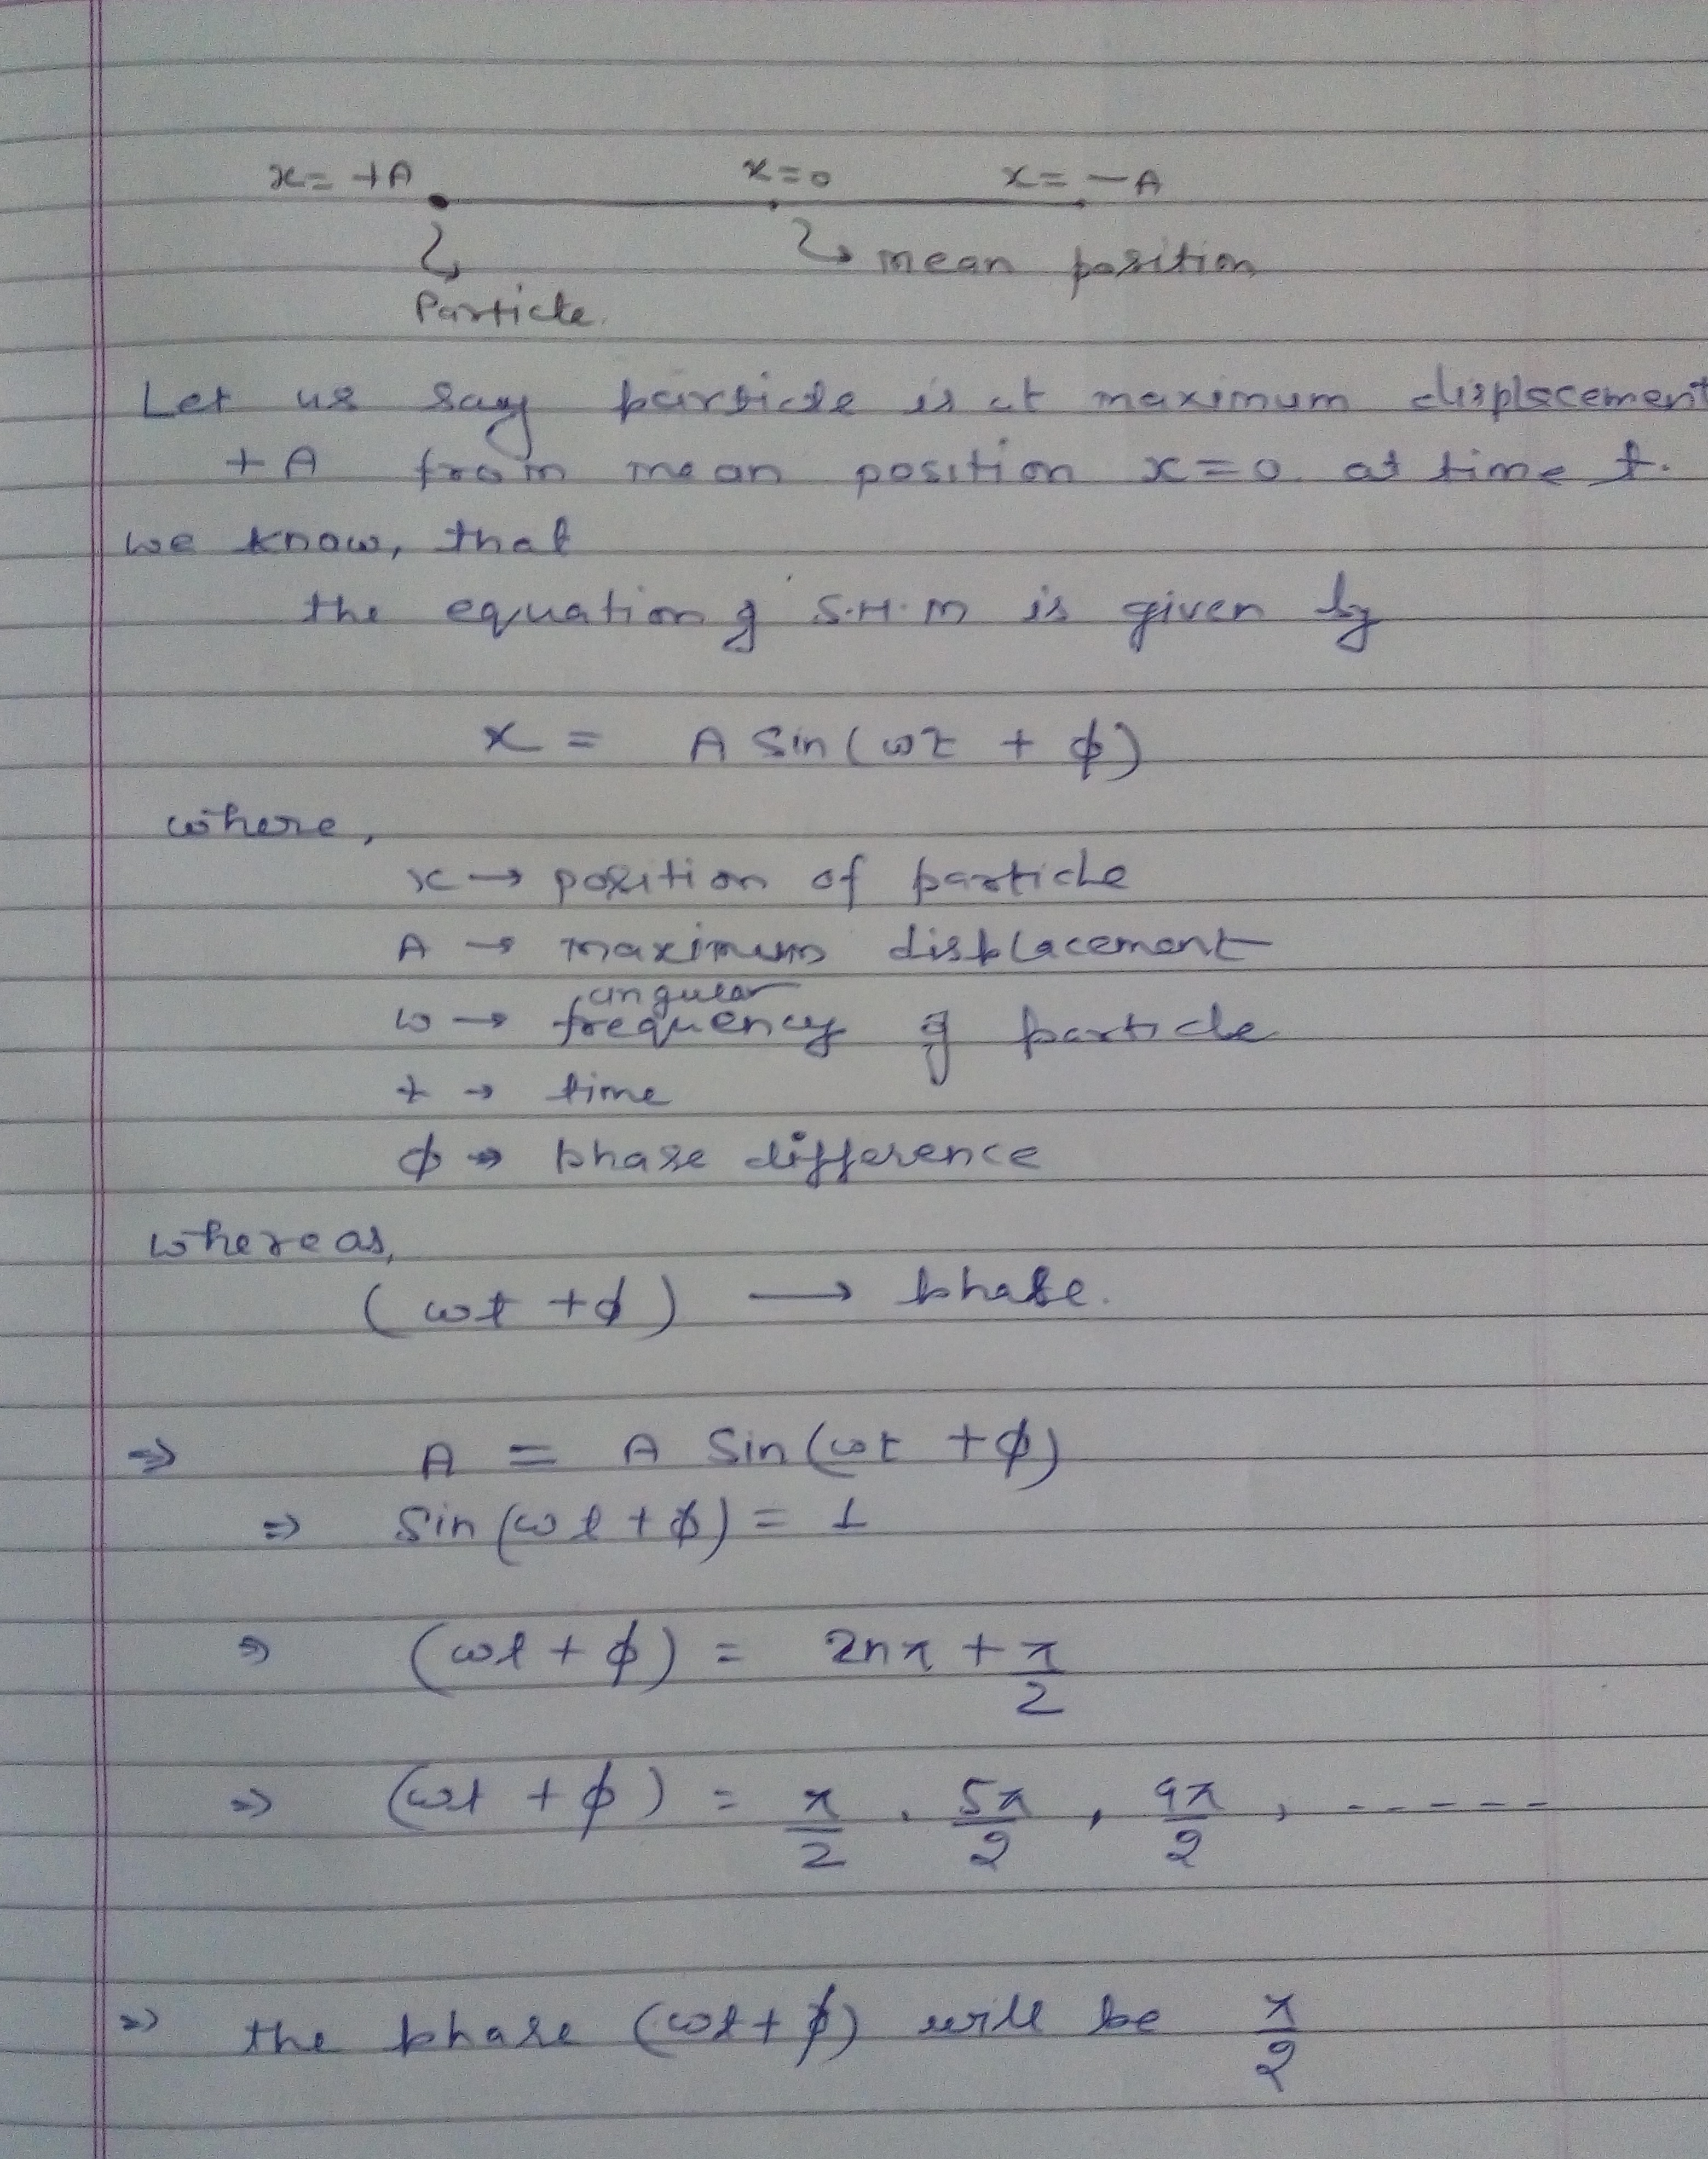 x = +A x=0 x = -A
mean position
Particle.
Let us say particle is at maximum displacement
+A from mean position x=0 at time t.
we know, that
the equation of S.H.M is given by
x = A Sin(ωt + ϕ)
where,
x → position of particle
A → maximum displacement
angular
ω → frequency of particle
t → time
ϕ → phase difference
whereas,
(ωt + ϕ) → phase.
⇒ A = A Sin(ωt + ϕ)
⇒ Sin(ωt + ϕ) = 1
⇒ (ωt + ϕ) = 2nπ + π/2
⇒ (ωt + ϕ) = π/2, 5π/2, 9π/2, -----
⇒ the phase (ωt + ϕ) will be π/2